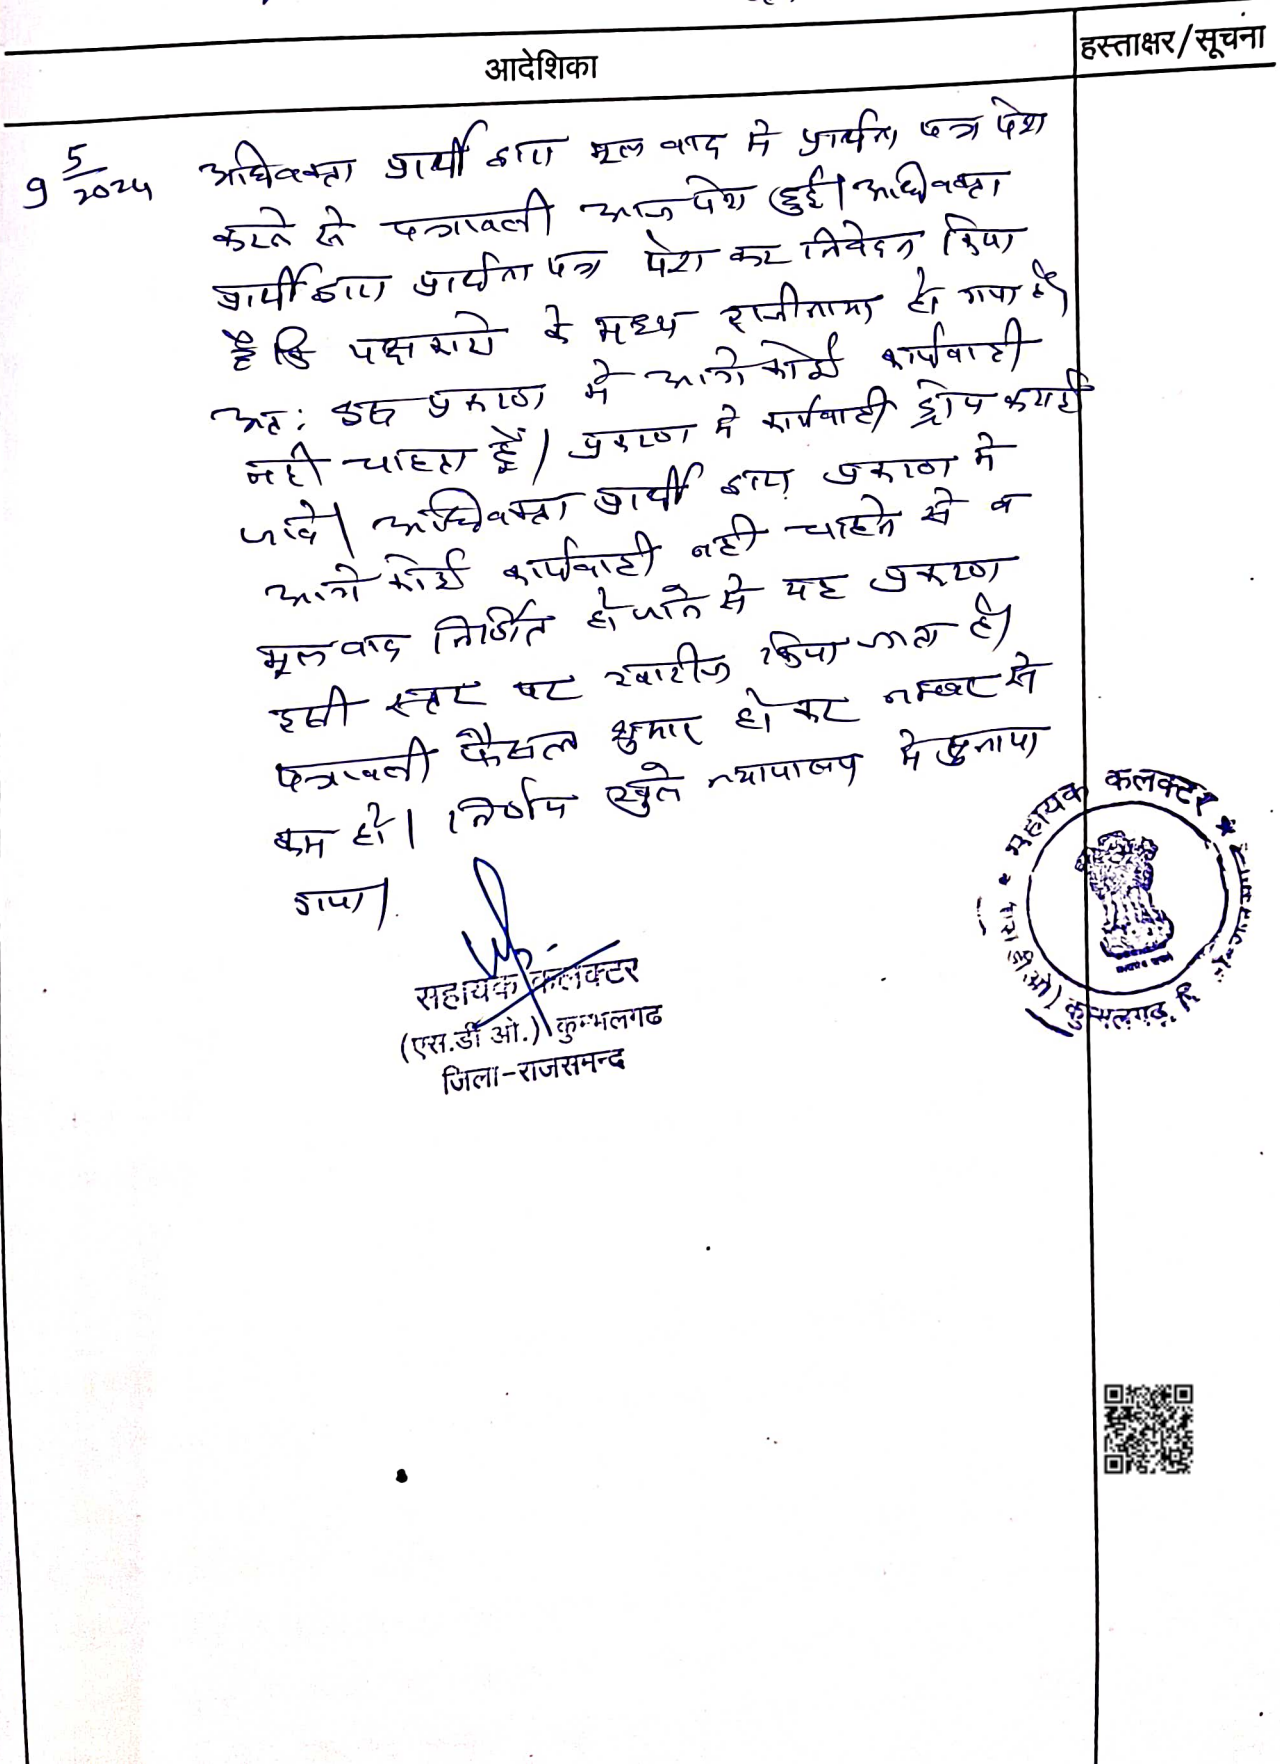 आदेशिका
हस्ताक्षर/सूचना
9 5/2024
अधिवक्ता प्रार्थी द्वारा मूल वाद मे प्रार्थना पत्र पेश
करने से पत्रावली आज पेश हुई। अधिवक्ता
प्रार्थी द्वारा प्रार्थना पत्र पेश कर निवेदन किया
है कि पक्षकारो के मध्य राजीनामा हो गया है
अत: इस प्रकरण मे आगे कोई कार्यवाही
नही चाहता हूँ। प्रकरण मे कार्यवाही ड्रोप कराई
जावे। अधिवक्ता प्रार्थी द्वारा प्रकरण मे
आगे कोई कार्यवाही नही चाहने से व
मूल वाद निर्णित हो जाने से यह प्रकरण
इसी स्तर पर खारीज किया जाता है।
पत्रावली फैसल शुमार हो कर नम्बर से
कम हो। निर्णय खुले न्यायालय मे सुनाया
गया।
सहायक कलक्टर
(एस.डी ओ.) कुम्भलगढ
जिला-राजसमन्द
सहायक कलक्टर
कुम्भलगढ़